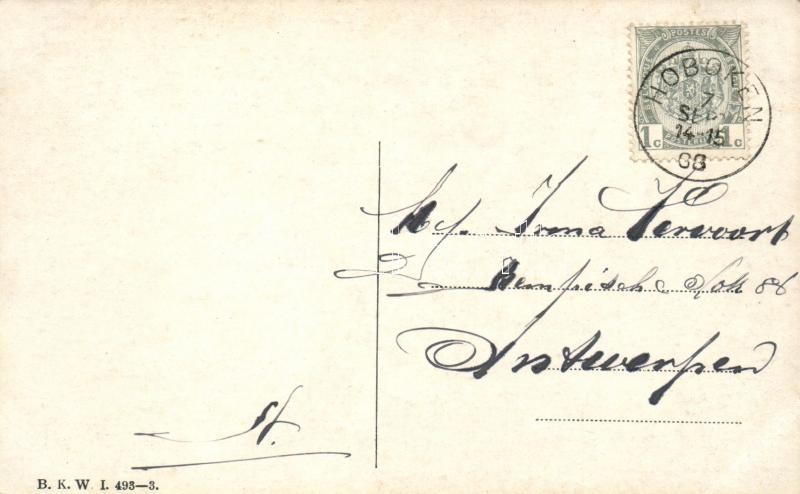 POSTES
1c 1c
HOBOKEN
7
SEP
14-15
08
Irma Vervoort
Kempisch Dok 86
Antwerpen
B. K. W. I. 493—3.